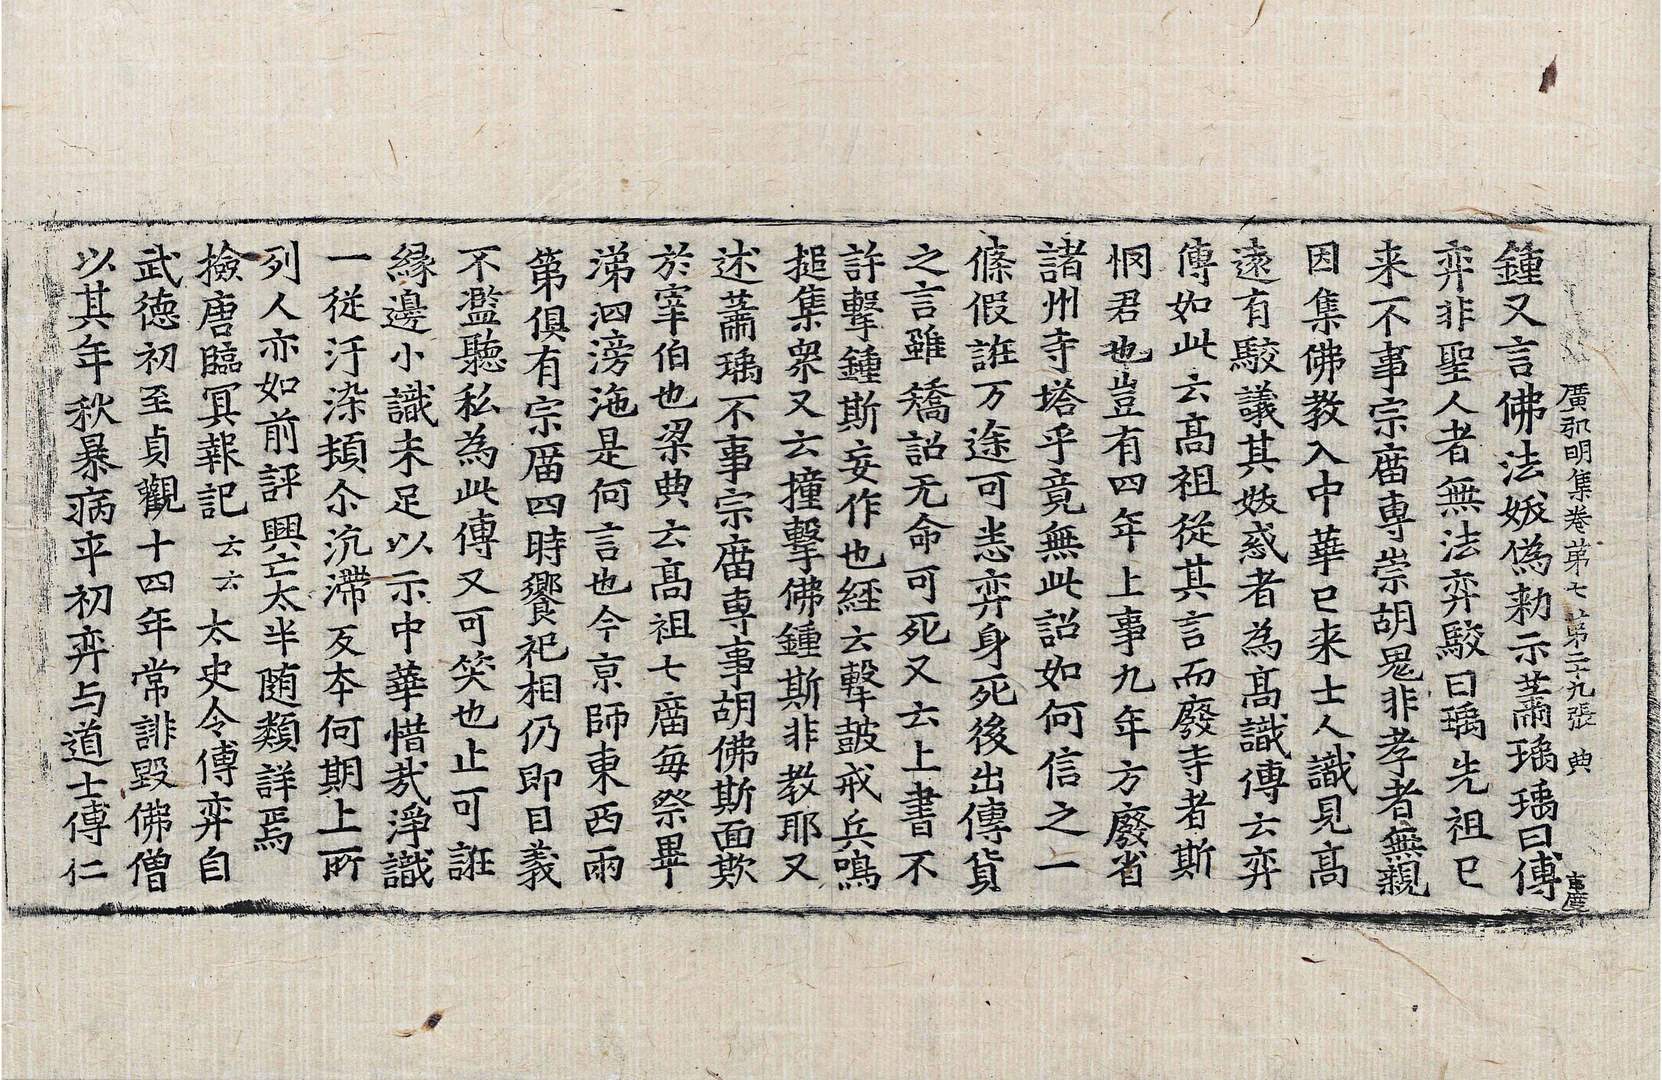 廣弘明集卷第七 第二十九張 典
鍾又言佛法妖偽勅示蕭瑀瑀曰傅
弈非聖人者無法弈駮曰瑀先祖已
来不事宗庿專崇胡鬼非孝者無親
因集佛教入中華已来士人識見高
遠有駮議其妖惑者為高識傳云弈
傳如此云高祖從其言而廢寺者斯
惘君也豈有四年上事九年方廢省
諸州寺塔乎竟無此詔如何信之一
條假誑万途可悉弈身死後出傳貨
之言雖矯詔无命可死又云上書不
許擊鍾斯妄作也經云擊鼓戒兵鳴
搥集衆又云撞擊佛鍾斯非教耶又
述蕭瑀不事宗庿専事胡佛斯面欺
於宰伯也梁典云高祖七庿每祭畢
涕泗滂沲是何言也今京師東西兩
第俱有宗庿四時饗祀相仍即目義
不濫聽私為此傳又可笑也止可誑
縁邊小識未足以示中華惜㢤淨識
一從汙染頓尒沉滯反本何期上所
列人亦如前評興亡太半随類詳焉
撿唐臨冥報記云云太史令傅弈自
武德初至貞觀十四年常誹毀佛僧
以其年秋暴病卒初弈与道士傅仁